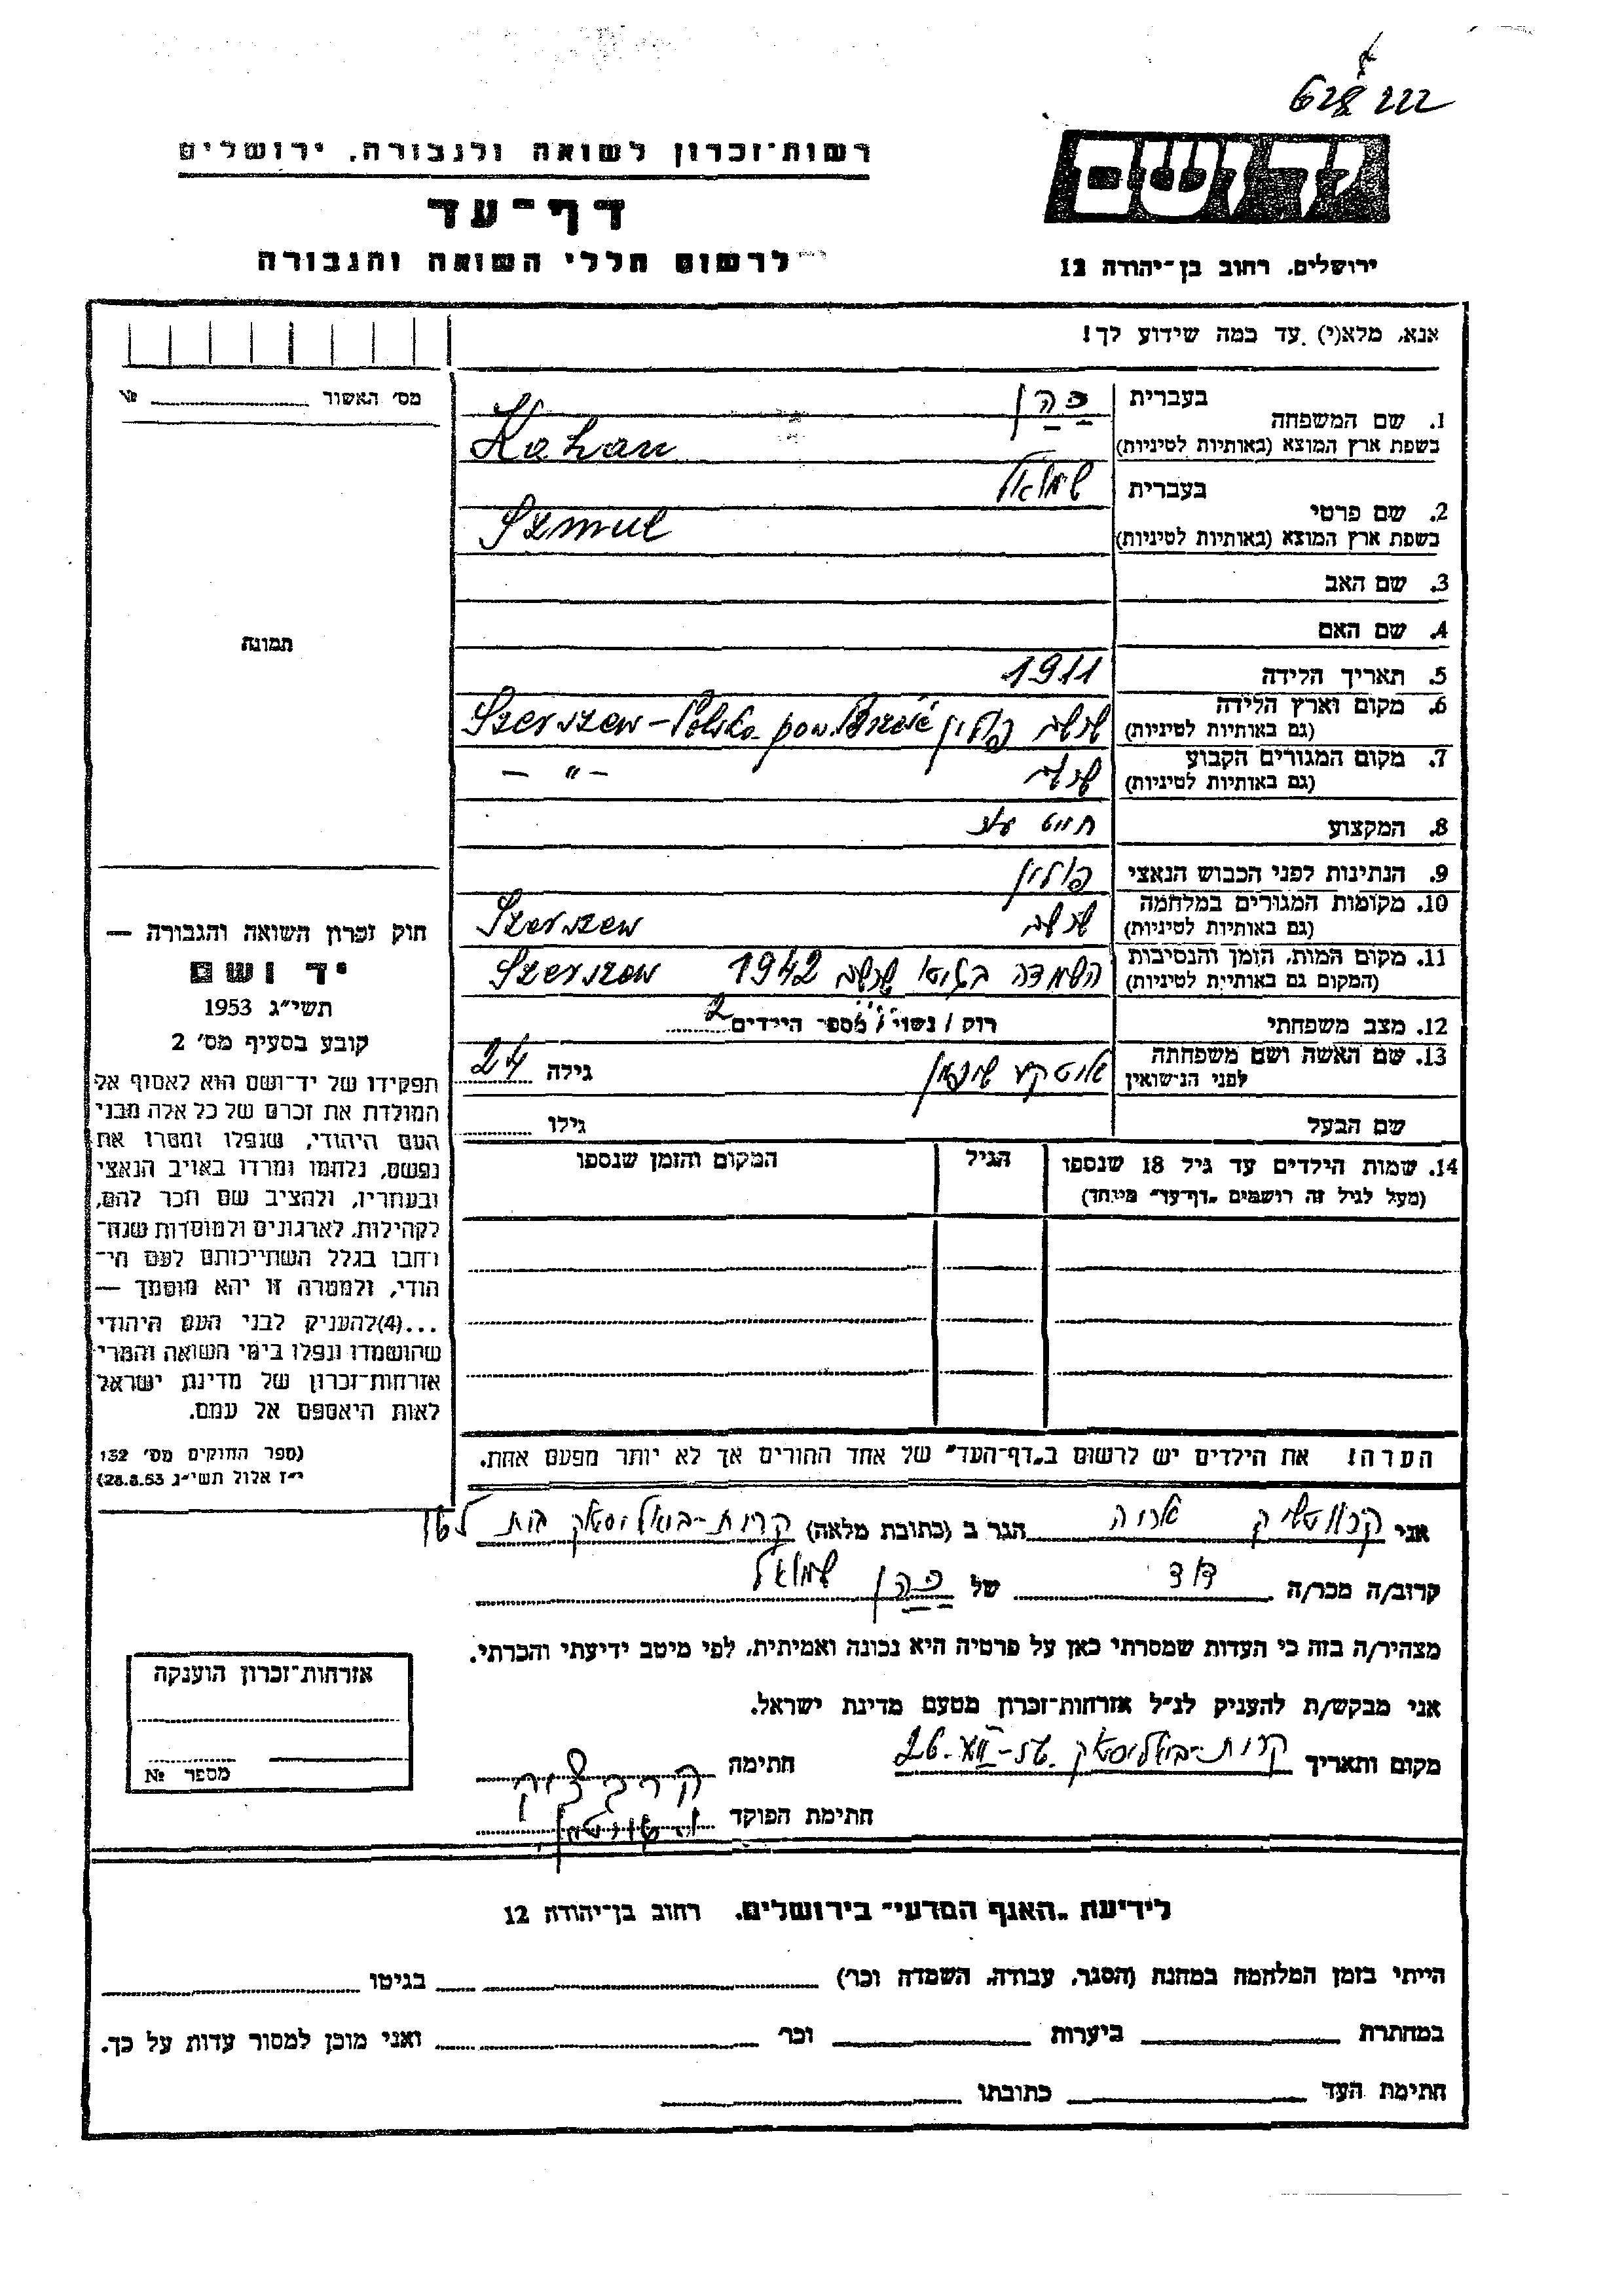 רשות־זכרון לשואה ולגבורה, ירושלים
יד ושם
דף־עד
לרשום חללי השואה והגבורה
ירושלים, רחוב בן־יהודה 12
אנא, מלא(י) עד כמה שידוע לך!
מס' האשור № 
1. שם המשפחה
בעברית כהן
בשפת ארץ המוצא (באותיות לטיניות) Kahan
2. שם פרטי
בעברית שמואל
בשפת ארץ המוצא (באותיות לטיניות) Szmul
3. שם האב
4. שם האם
תמונה
5. תאריך הלידה 1911
6. מקום וארץ הלידה (גם באותיות לטיניות) שרשב פולין Szerszew - Polska pow. Brześć
7. מקום המגורים הקבוע (גם באותיות לטיניות) שרשב - " -
8. המקצוע חייט
9. הנתינות לפני הכבוש הנאצי פולין
10. מקומות המגורים במלחמה (גם באותיות לטיניות) שרשב Szerszew
11. מקום המות, הזמן והנסיבות (המקום גם באותיית לטיניות) השמדה בגיטו שרשב 1942 Szerszow
12. מצב משפחתי רוק / נשוי / מספר הילדים 2
13. שם האשה ושם משפחתה לפני הנישואין גילה 24
שם הבעל גילו
14. שמות הילדים עד גיל 18 שנספו
(מעל לגיל זה רושמים „דף־עד" מיוחד)
הגיל
המקום והזמן שנספו
הערה! את הילדים יש לרשום ב„דף־העד" של אחד ההורים אך לא יותר מפעם אחת.
חוק זכרון השואה והגבורה —
יד ושם
תשי"ג 1953
קובע בסעיף מס' 2
תפקידו של יד־ושם הוא לאסוף אל
המולדת את זכרם של כל אלה מבני
העם היהודי, שנפלו ומסרו את
נפשם, נלחמו ומרדו באויב הנאצי
ובעוזריו, ולהציב שם וזכר להם,
לקהילות, לארגונים ולמוסדות שנח־
רחבו בגלל השתייכותם לעם הי־
הודי, ולמטרה זו יהא מוסמך —
...(4)להעניק לבני העם היהודי
שהושמדו ונפלו בימי השואה והמרי
אזרחות־זכרון של מדינת ישראל
לאות היאספם אל עמם.
(ספר החוקים מס' 132
י"ז אלול תשי"ג 28.8.53)
אני אריה הגר ב (כתובת מלאה) קרית-ביאליסטוק
קרוב/ה מכר/ה דוד של כהן שמואל
מצהיר/ה בזה כי העדות שמסרתי כאן על פרטיה היא נכונה ואמיתית, לפי מיטב ידיעתי והכרתי.
אני מבקש/ת להעניק לנ"ל אזרחות־זכרון מטעם מדינת ישראל.
מקום ותאריך קרית-ביאליסטוק חתימה
חתימת הפוקד
אזרחות־זכרון הוענקה
מספר №
לידיעת „האגף המדעי" בירושלים, רחוב בן־יהודה 12
הייתי בזמן המלחמה במחנה (הסגר, עבודה, השמדה וכר) בגיטו
במחתרת ביערות וכר ואני מוכן למסור עדות על כך.
חתימת העד כתובתו